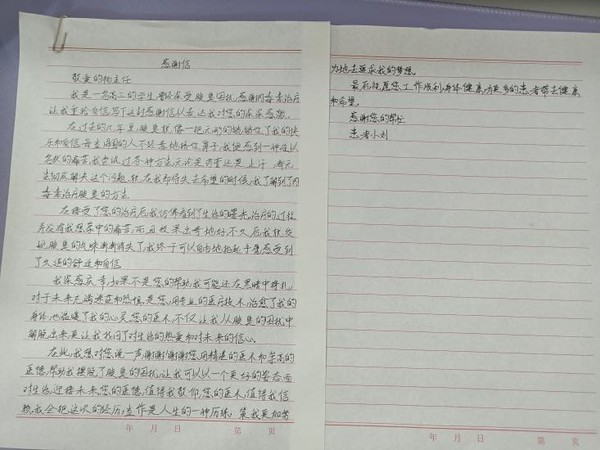 感谢信
敬重的杨主任
我是一名高二的学生,曾经承受腋臭困扰,感谢肉毒素治疗
让我重拾自信,写下这封感谢信以表达我对您的深深感激。
在过去的几年里,腋臭就像一把无形的锁,锁住了我的快
乐和自信,每当周围的人不经意地掩住鼻子,我便感到一种难以
名状的痛苦,我尝试过各种方法,无论是药膏还是止汗,都无
法彻底解决这个问题,就在我即将失去希望的时候,我了解到了肉
毒素治疗腋臭的方法。
在接受了您的治疗后,我仿佛看到了生活的曙光,治疗的过程
并没有我想象中的痛苦,而且效果出奇地好,不久后我就发
现腋臭的气味渐渐消失了,我终于可以自由地抬起手臂感受到
了久违的舒适和自信
我深感庆幸,如果不是您的帮助,我可能还在黑暗中挣扎,
对于未来充满迷茫和恐惧,是您,用专业的医疗技术,治愈了我的
身体,也温暖了我的心灵,您的医术,不仅让我从腋臭的困扰中
解脱出来,更让我找回了对生活的热爱和对未来的信心。
在此,我想对您说一声,谢谢!谢谢您用精湛的医术和崇高的
医德,帮助我摆脱了腋臭的困扰,让我可以以一个更好的姿态面
对生活,迎接未来,您的医德,值得我敬仰,您的医术,值得我信
赖,我会把这次的经历,当作是人生的一种历练,策我更加努
年 月 日 第 页
力地去追求我的梦想。
最后,祝愿您工作顺利,身体健康,为更多的患者带去健康
和希望。
感谢您的帮忙
患者小刘
年 月 日 第 页